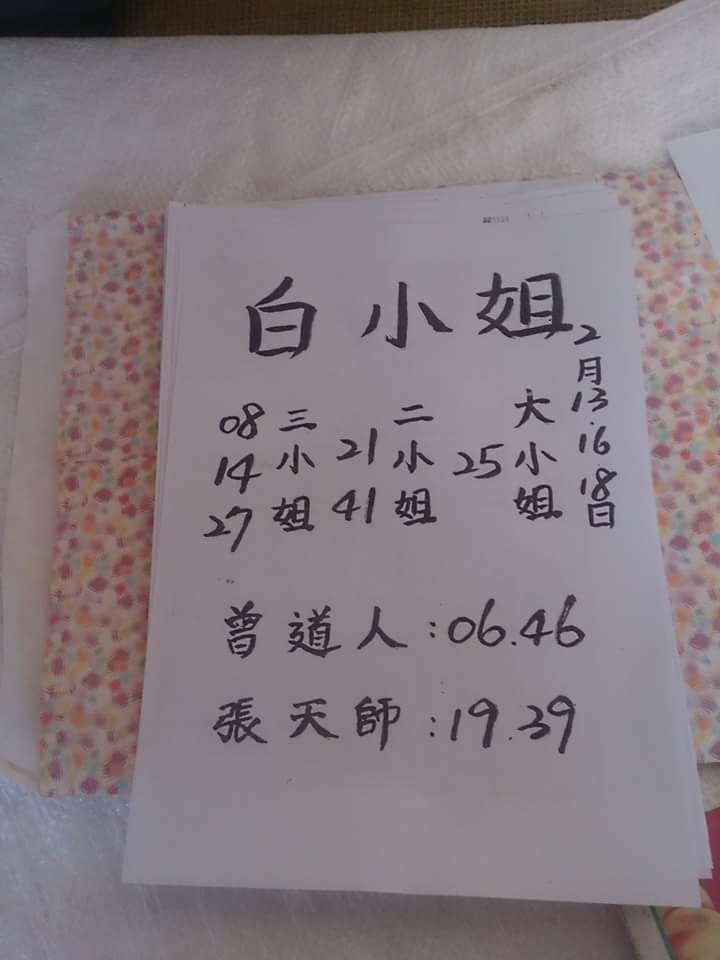 白小姐
2月13.16.18日
大小姐
25
二小姐
21
41
三小姐
08
14
27
曾道人:06.46
張天師:19.39